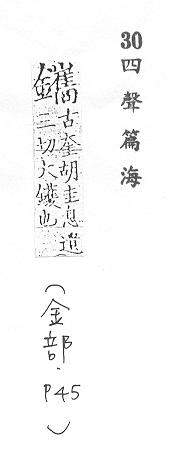 30四聲篇海
鑴古奎胡圭息遣
三切大鑊也
（金部．P45）